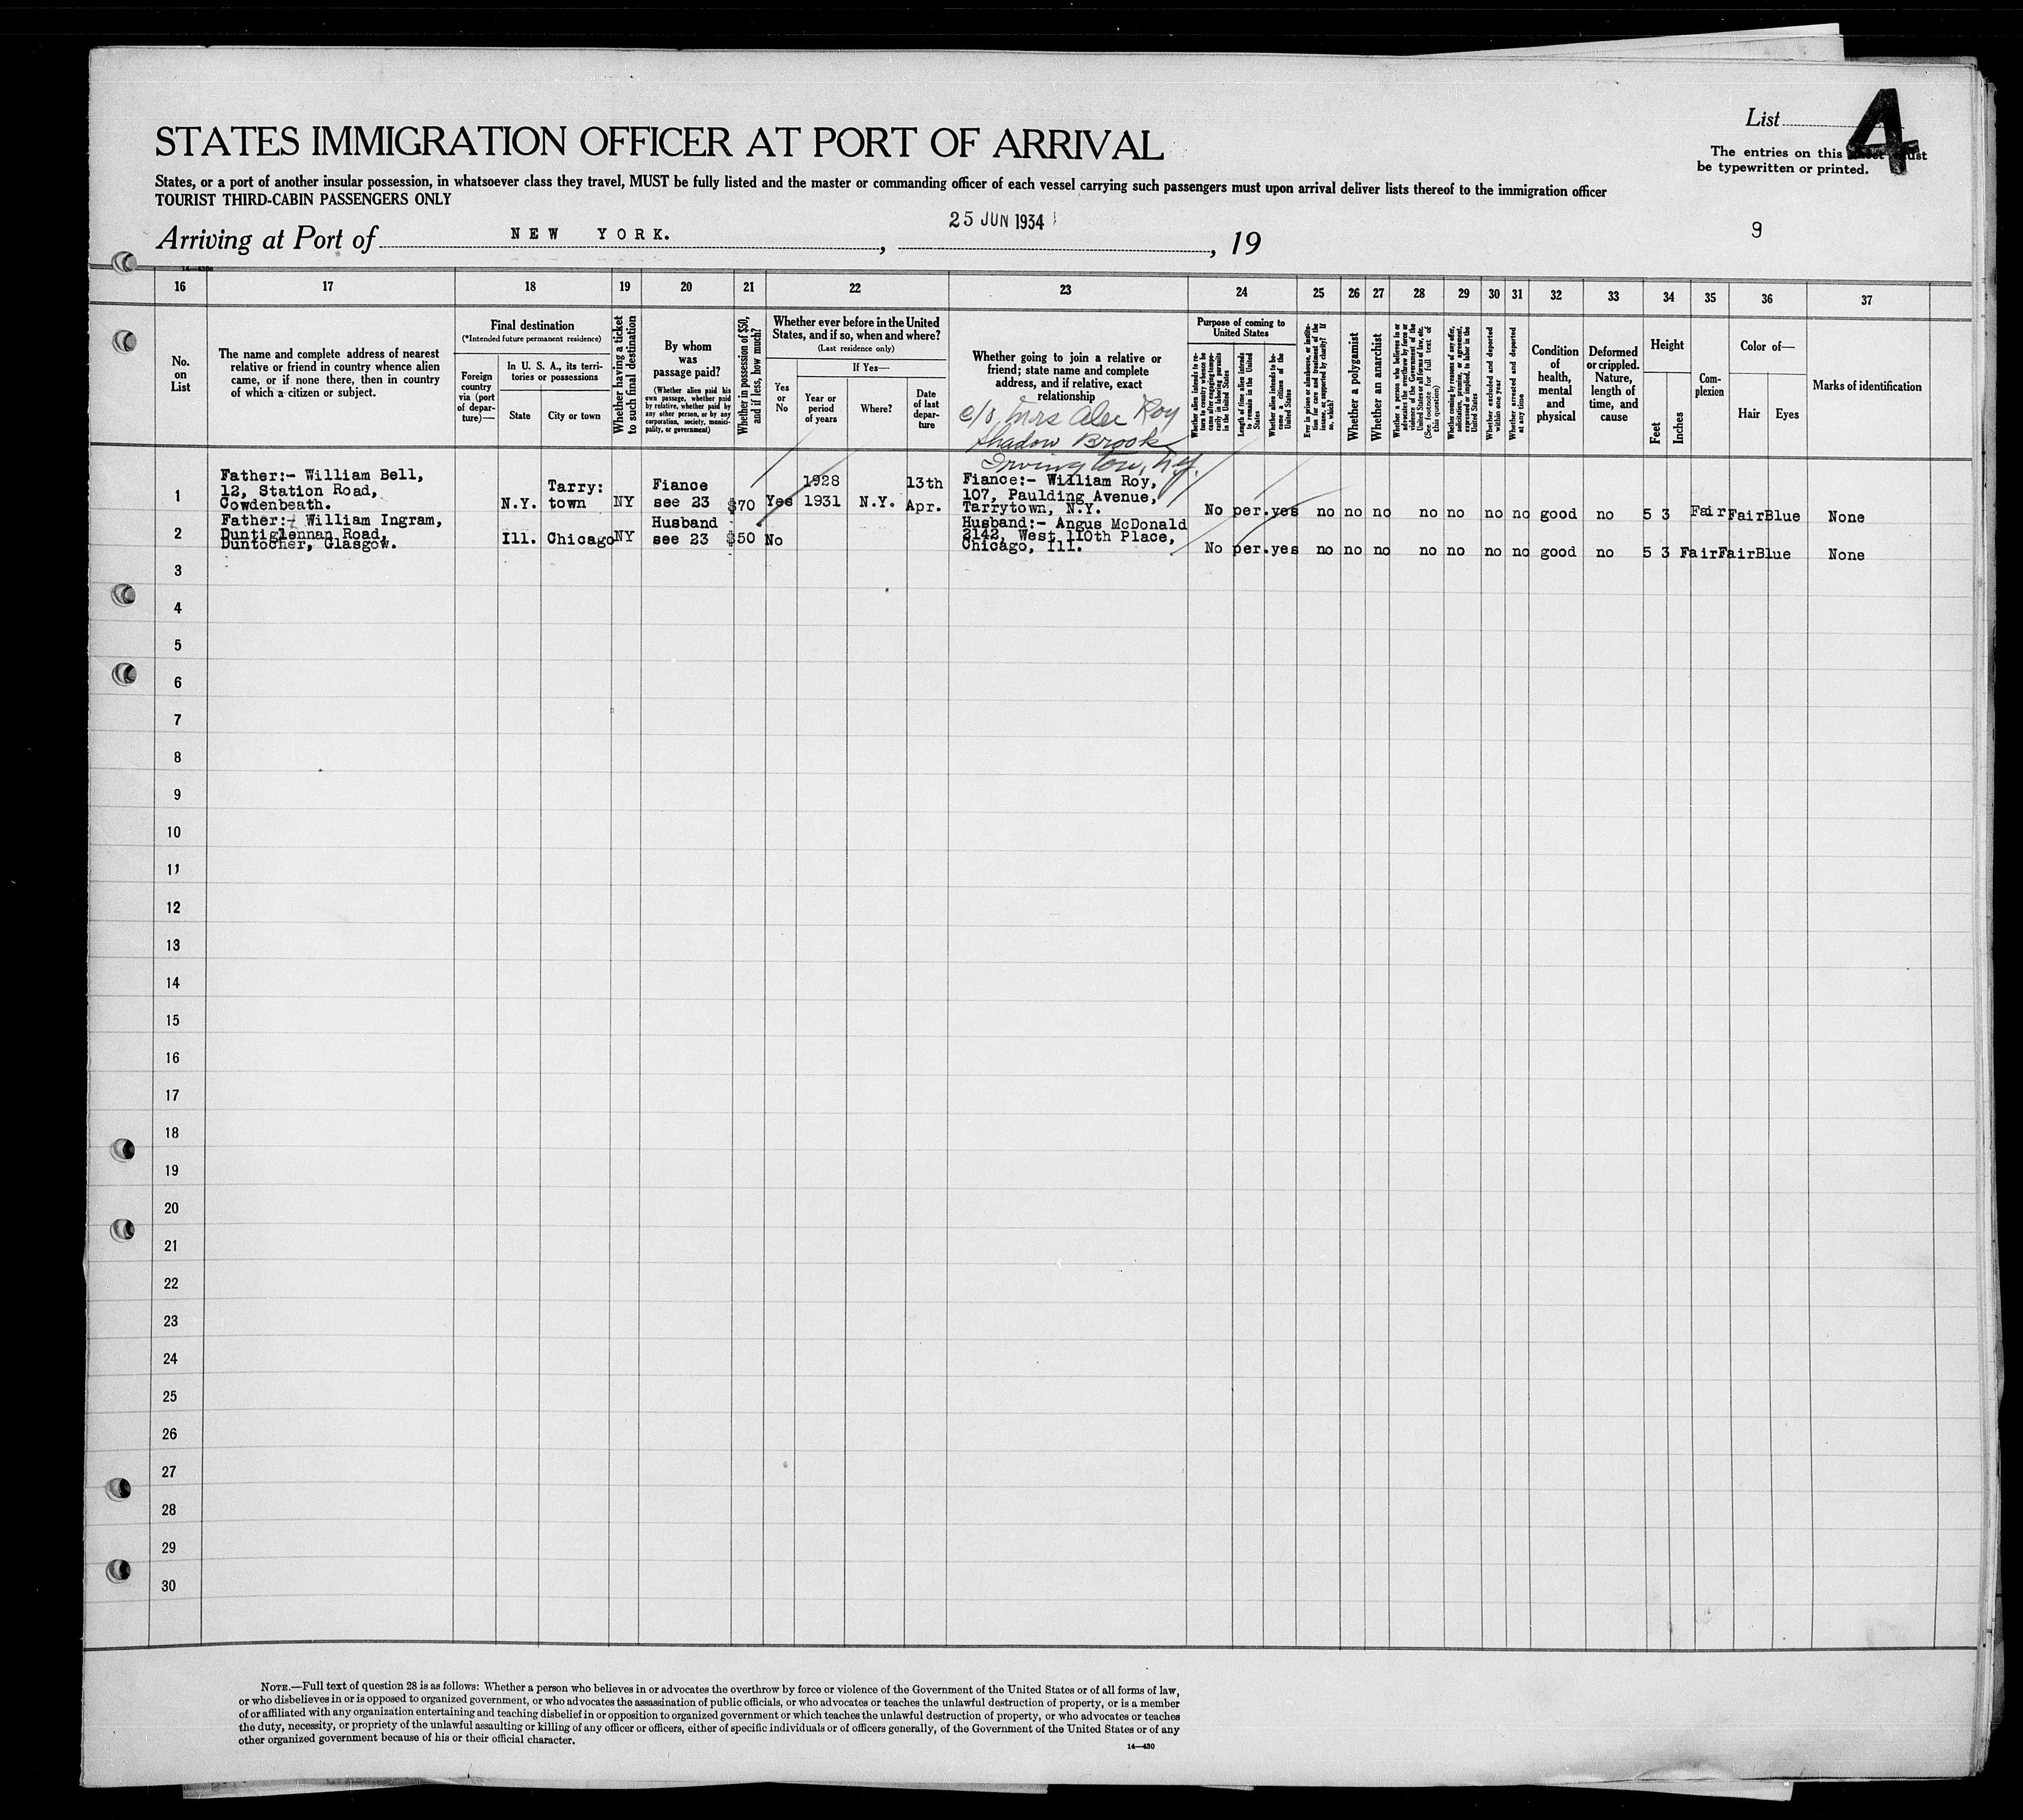 List
4
The entries on this
be typewritten or printed.
STATES IMMIGRATION OFFICER AT PORT OF ARRIVAL
States, or a port of another insular possession, in whatsoever class they travel, MUST be fully listed and the master or commanding officer of each vessel carrying such passengers must upon arrival deliver lists thereof to the immigration officer
TOURIST THIRD-CABIN PASSENGERS ONLY
Arriving at Port of NEW YORK. , 25 JUN 1934 , 19
9
16 17 18 19 20 21 22 23 24 25 26 27 28 29 30 31 32 33 34 35 36 37
No. on List
The name and complete address of nearest
relative or friend in country whence alien
came, or if none there, then in country
of which a citizen or subject.
Final destination
(*Intended future permanent residence)
Foreign country via (port of departure)—
In U. S. A., its territories or possessions
State
City or town
Whether having a ticket to such final destination
By whom was passage paid?
(Whether alien paid his own passage, whether paid by relative, whether paid by any other person, or by any corporation, society, municipality, or government)
Whether in possession of $50, and if less, how much?
Whether ever before in the United
States, and if so, when and where?
(Last residence only)
Yes or No
If Yes—
Year or period of years
Where?
Date of last departure
Whether going to join a relative or
friend; state name and complete
address, and if relative, exact
relationship
c/o Mrs Alex Roy
Shadow Brook
Irvington, N.Y.
Purpose of coming to
United States
Whether alien intends to return to country whence he came after engaging temporarily in laboring pursuits in the United States
Length of time alien intends to remain in the United States
Whether alien intends to become a citizen of the United States
Ever in prison or almshouse, or institution for care and treatment of the insane, or supported by charity? If so, which?
Whether a polygamist
Whether an anarchist
Whether a person who believes in or advocates the overthrow by force or violence of the Government of the United States or all forms of law, etc. (See footnote for full text of this question)
Whether coming by reasons of any offer, solicitation, promise, or agreement, expressed or implied, to labor in the United States
Whether excluded and deported within one year
Whether arrested and deported at any time
Condition of health, mental and physical
Deformed or crippled. Nature, length of time, and cause
Height
Feet
Inches
Complexion
Color of—
Hair
Eyes
Marks of identification
1
Father:- William Bell,
12, Station Road,
Cowdenbeath.
N.Y. Tarry:
town NY
Fiance
see 23 $70 Yes 1928
1931 N.Y. 13th
Apr.
Fiance:- William Roy,
107, Paulding Avenue,
Tarrytown, N.Y.
No per. yes no no no no no no no good no 5 3 Fair Fair Blue None
2
Father:- William Ingram,
Duntiglennan Road,
Duntocher, Glasgow.
Ill. Chicago NY
Husband
see 23 $50 No
Husband:- Angus McDonald
2142, West 110th Place,
Chicago, Ill.
No per. yes no no no no no no no good no 5 3 Fair Fair Blue None
3
4
5
6
7
8
9
10
11
12
13
14
15
16
17
18
19
20
21
22
23
24
25
26
27
28
29
30
NOTE.—Full text of question 28 is as follows: Whether a person who believes in or advocates the overthrow by force or violence of the Government of the United States or of all forms of law,
or who disbelieves in or is opposed to organized government, or who advocates the assassination of public officials, or who advocates or teaches the unlawful destruction of property, or is a member
of or affiliated with any organization entertaining and teaching disbelief in or opposition to organized government or which teaches the unlawful destruction of property, or who advocates or teaches
the duty, necessity, or propriety of the unlawful assaulting or killing of any officer or officers, either of specific individuals or of officers generally, of the Government of the United States or of any
other organized government because of his or their official character.
14—430